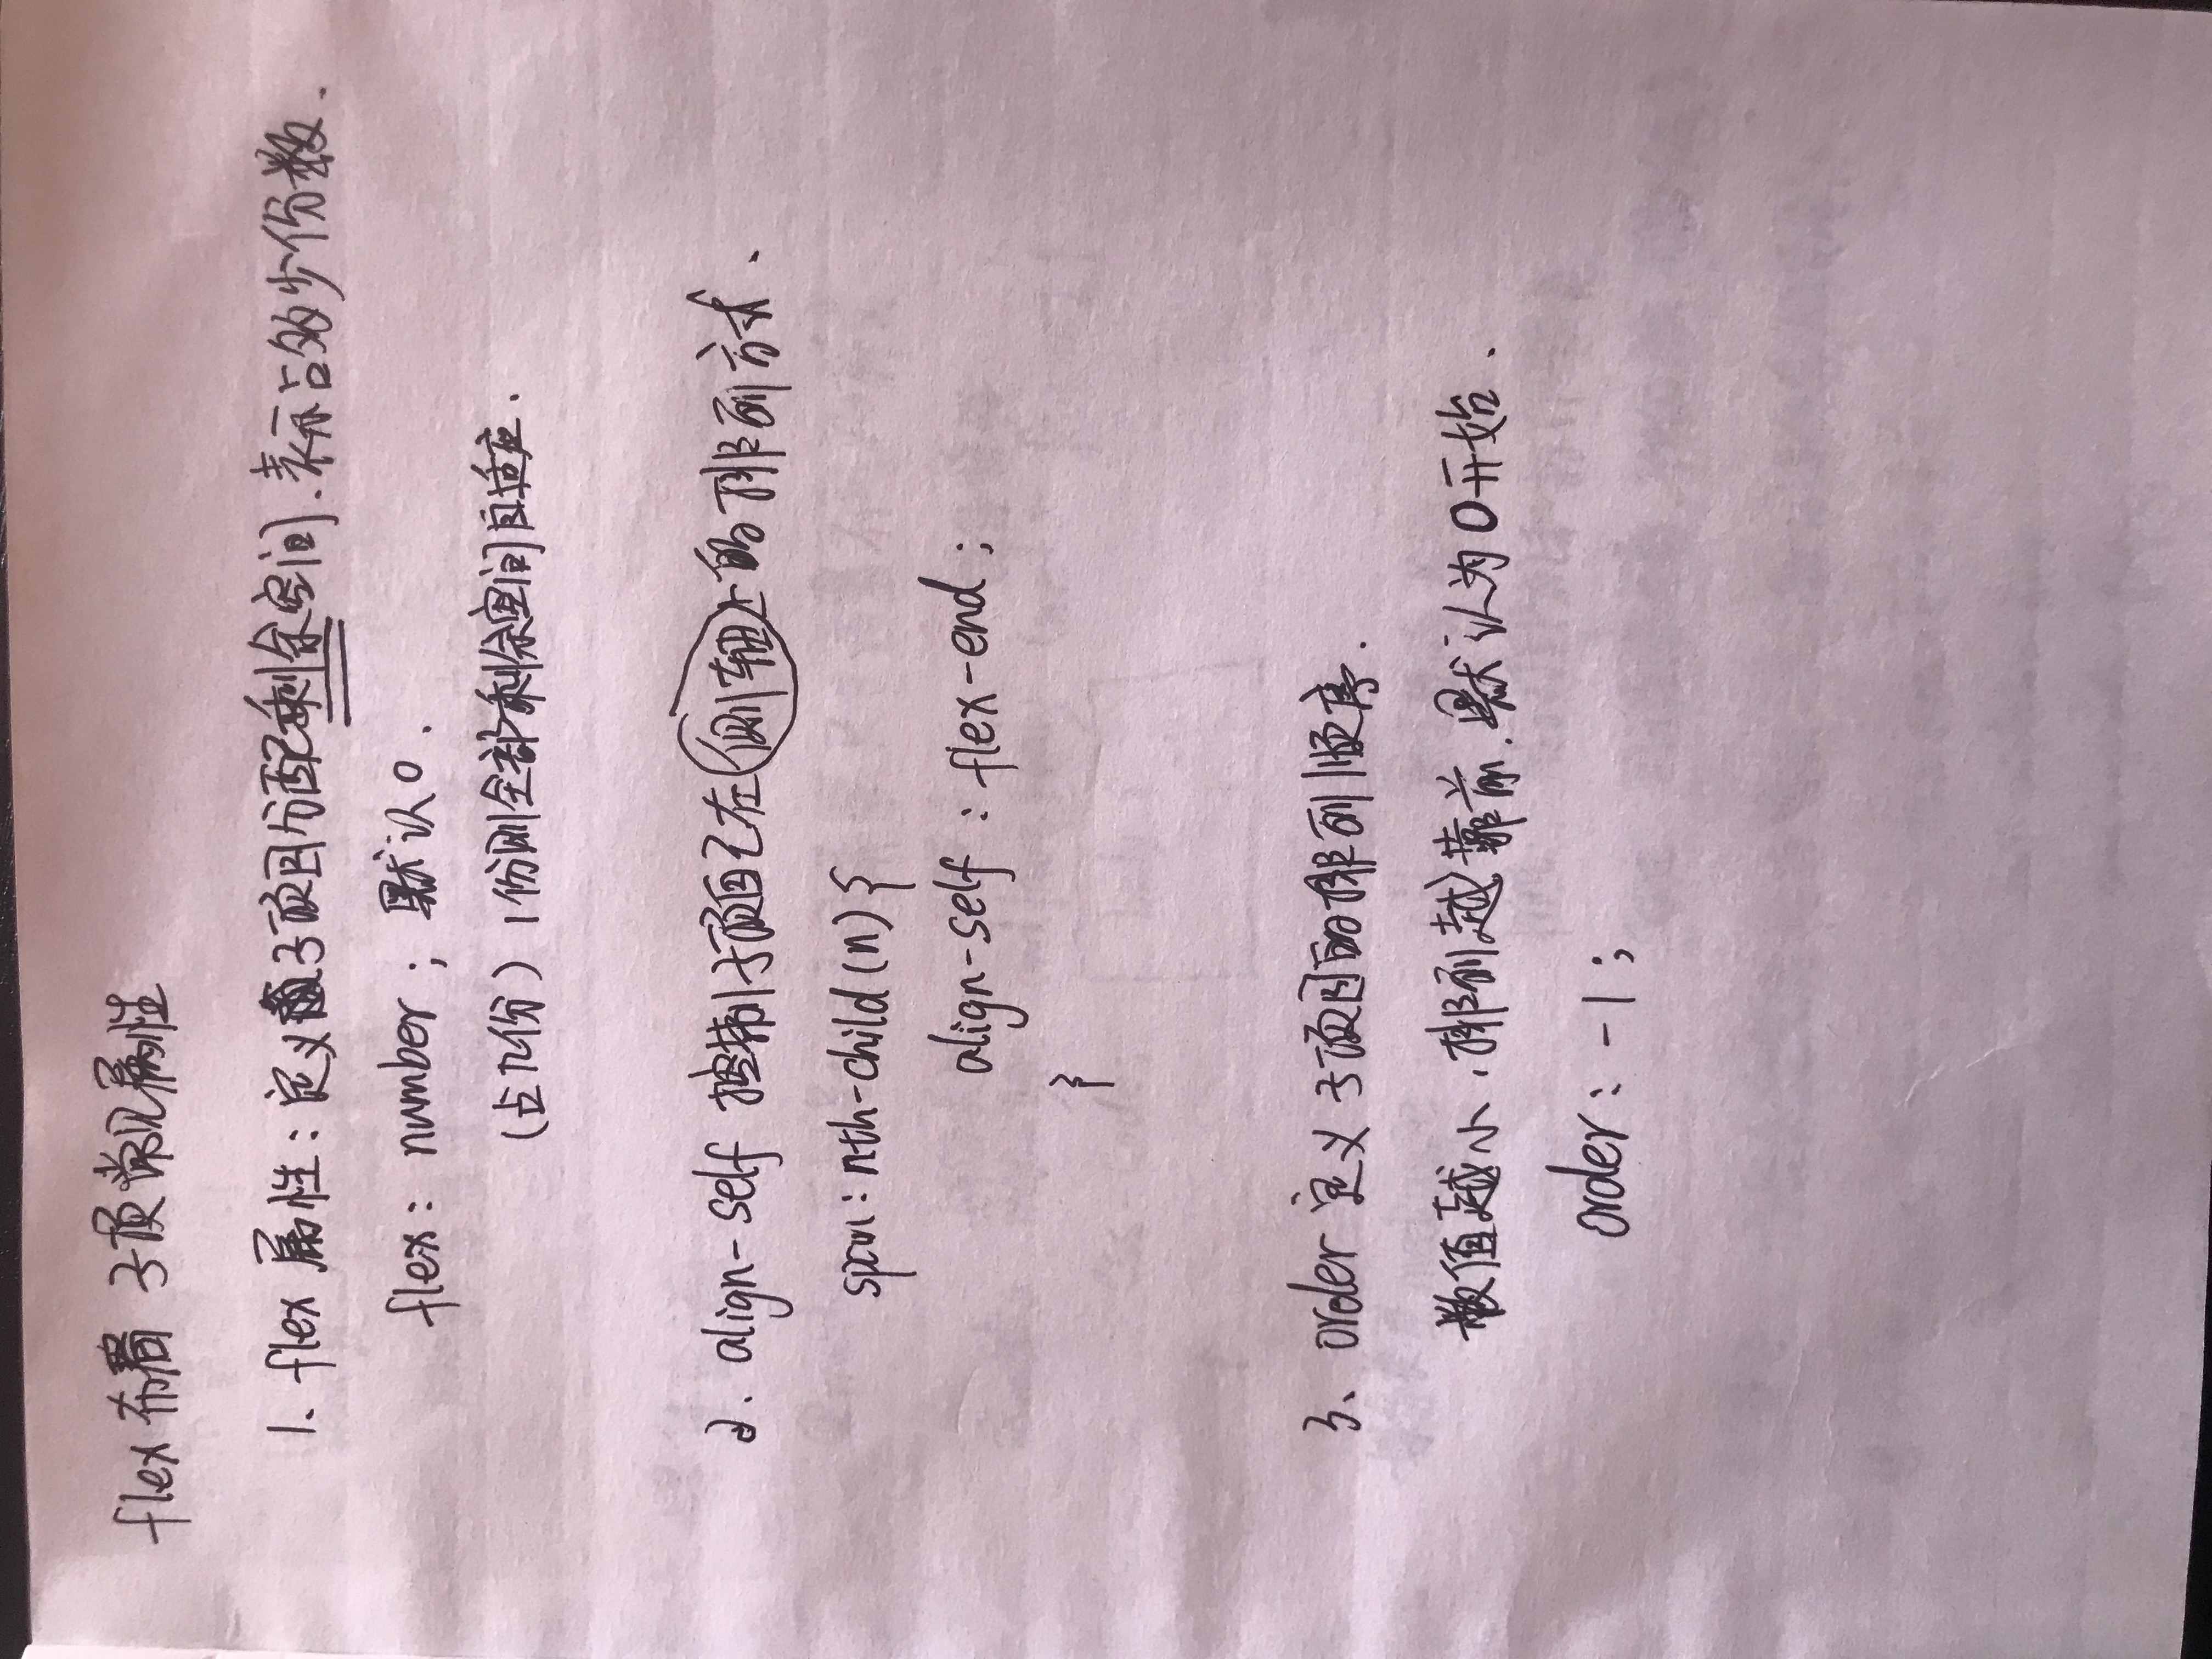 flex 布局 子项常见属性
1. flex 属性：定义子项目分配剩余空间、表示占多少份数.
flex： number ； 默认 0 .
(占几份) 1份则全部剩余空间自适应.
2. align-self 控制子项自己在侧轴上的排列方式.
span：nth-child (n) {
align-self ： flex-end ；
}
3、 order 定义子项目的排列顺序.
数值越小，排列越靠前. 默认为0开始.
order： -1 ；